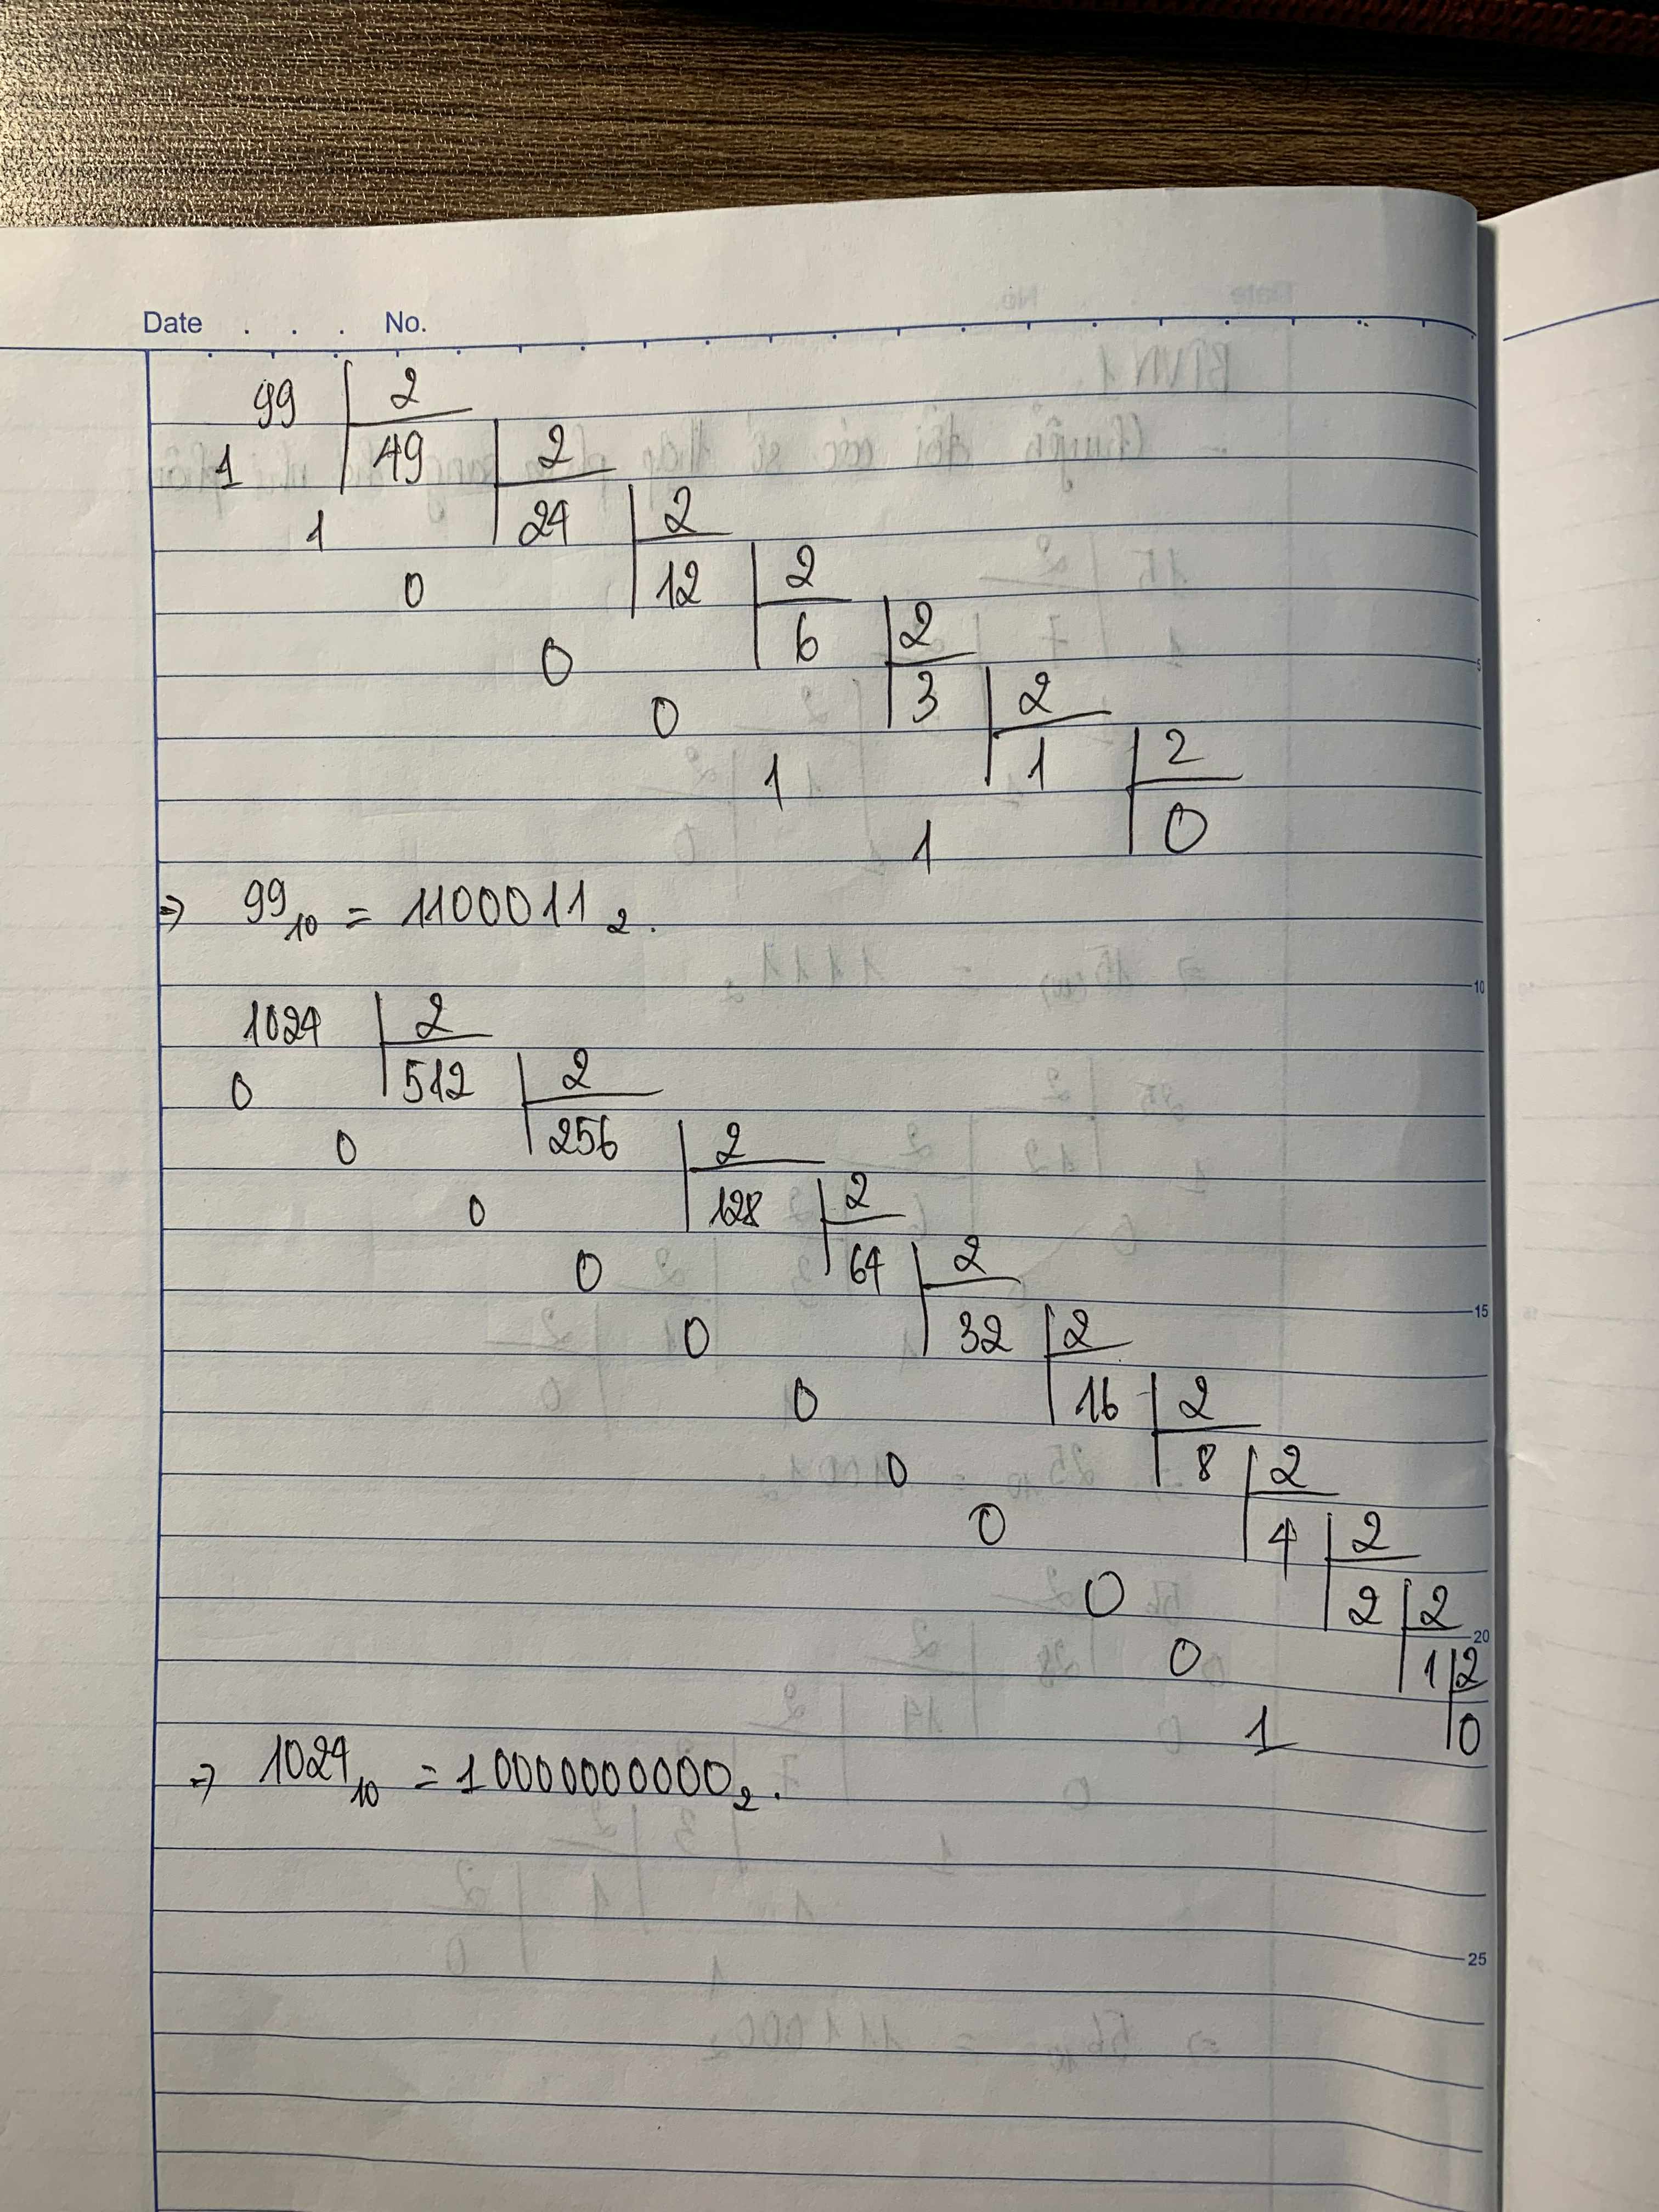 Date . . . No.
99 2
1 49 2
1 24 2
0 12 2
0 6 2
0 3 2
1 1 2
1 0
⇒ 99₁₀ = 1100011₂.
10
1024 2
0 512 2
0 256 2
0 128 2
0 64 2
15
0 32 2
0 16 2
0 8 2
0 4 2
0 2 2
20
0 1 2
1 0
⇒ 1024₁₀ = 10000000000₂.
25